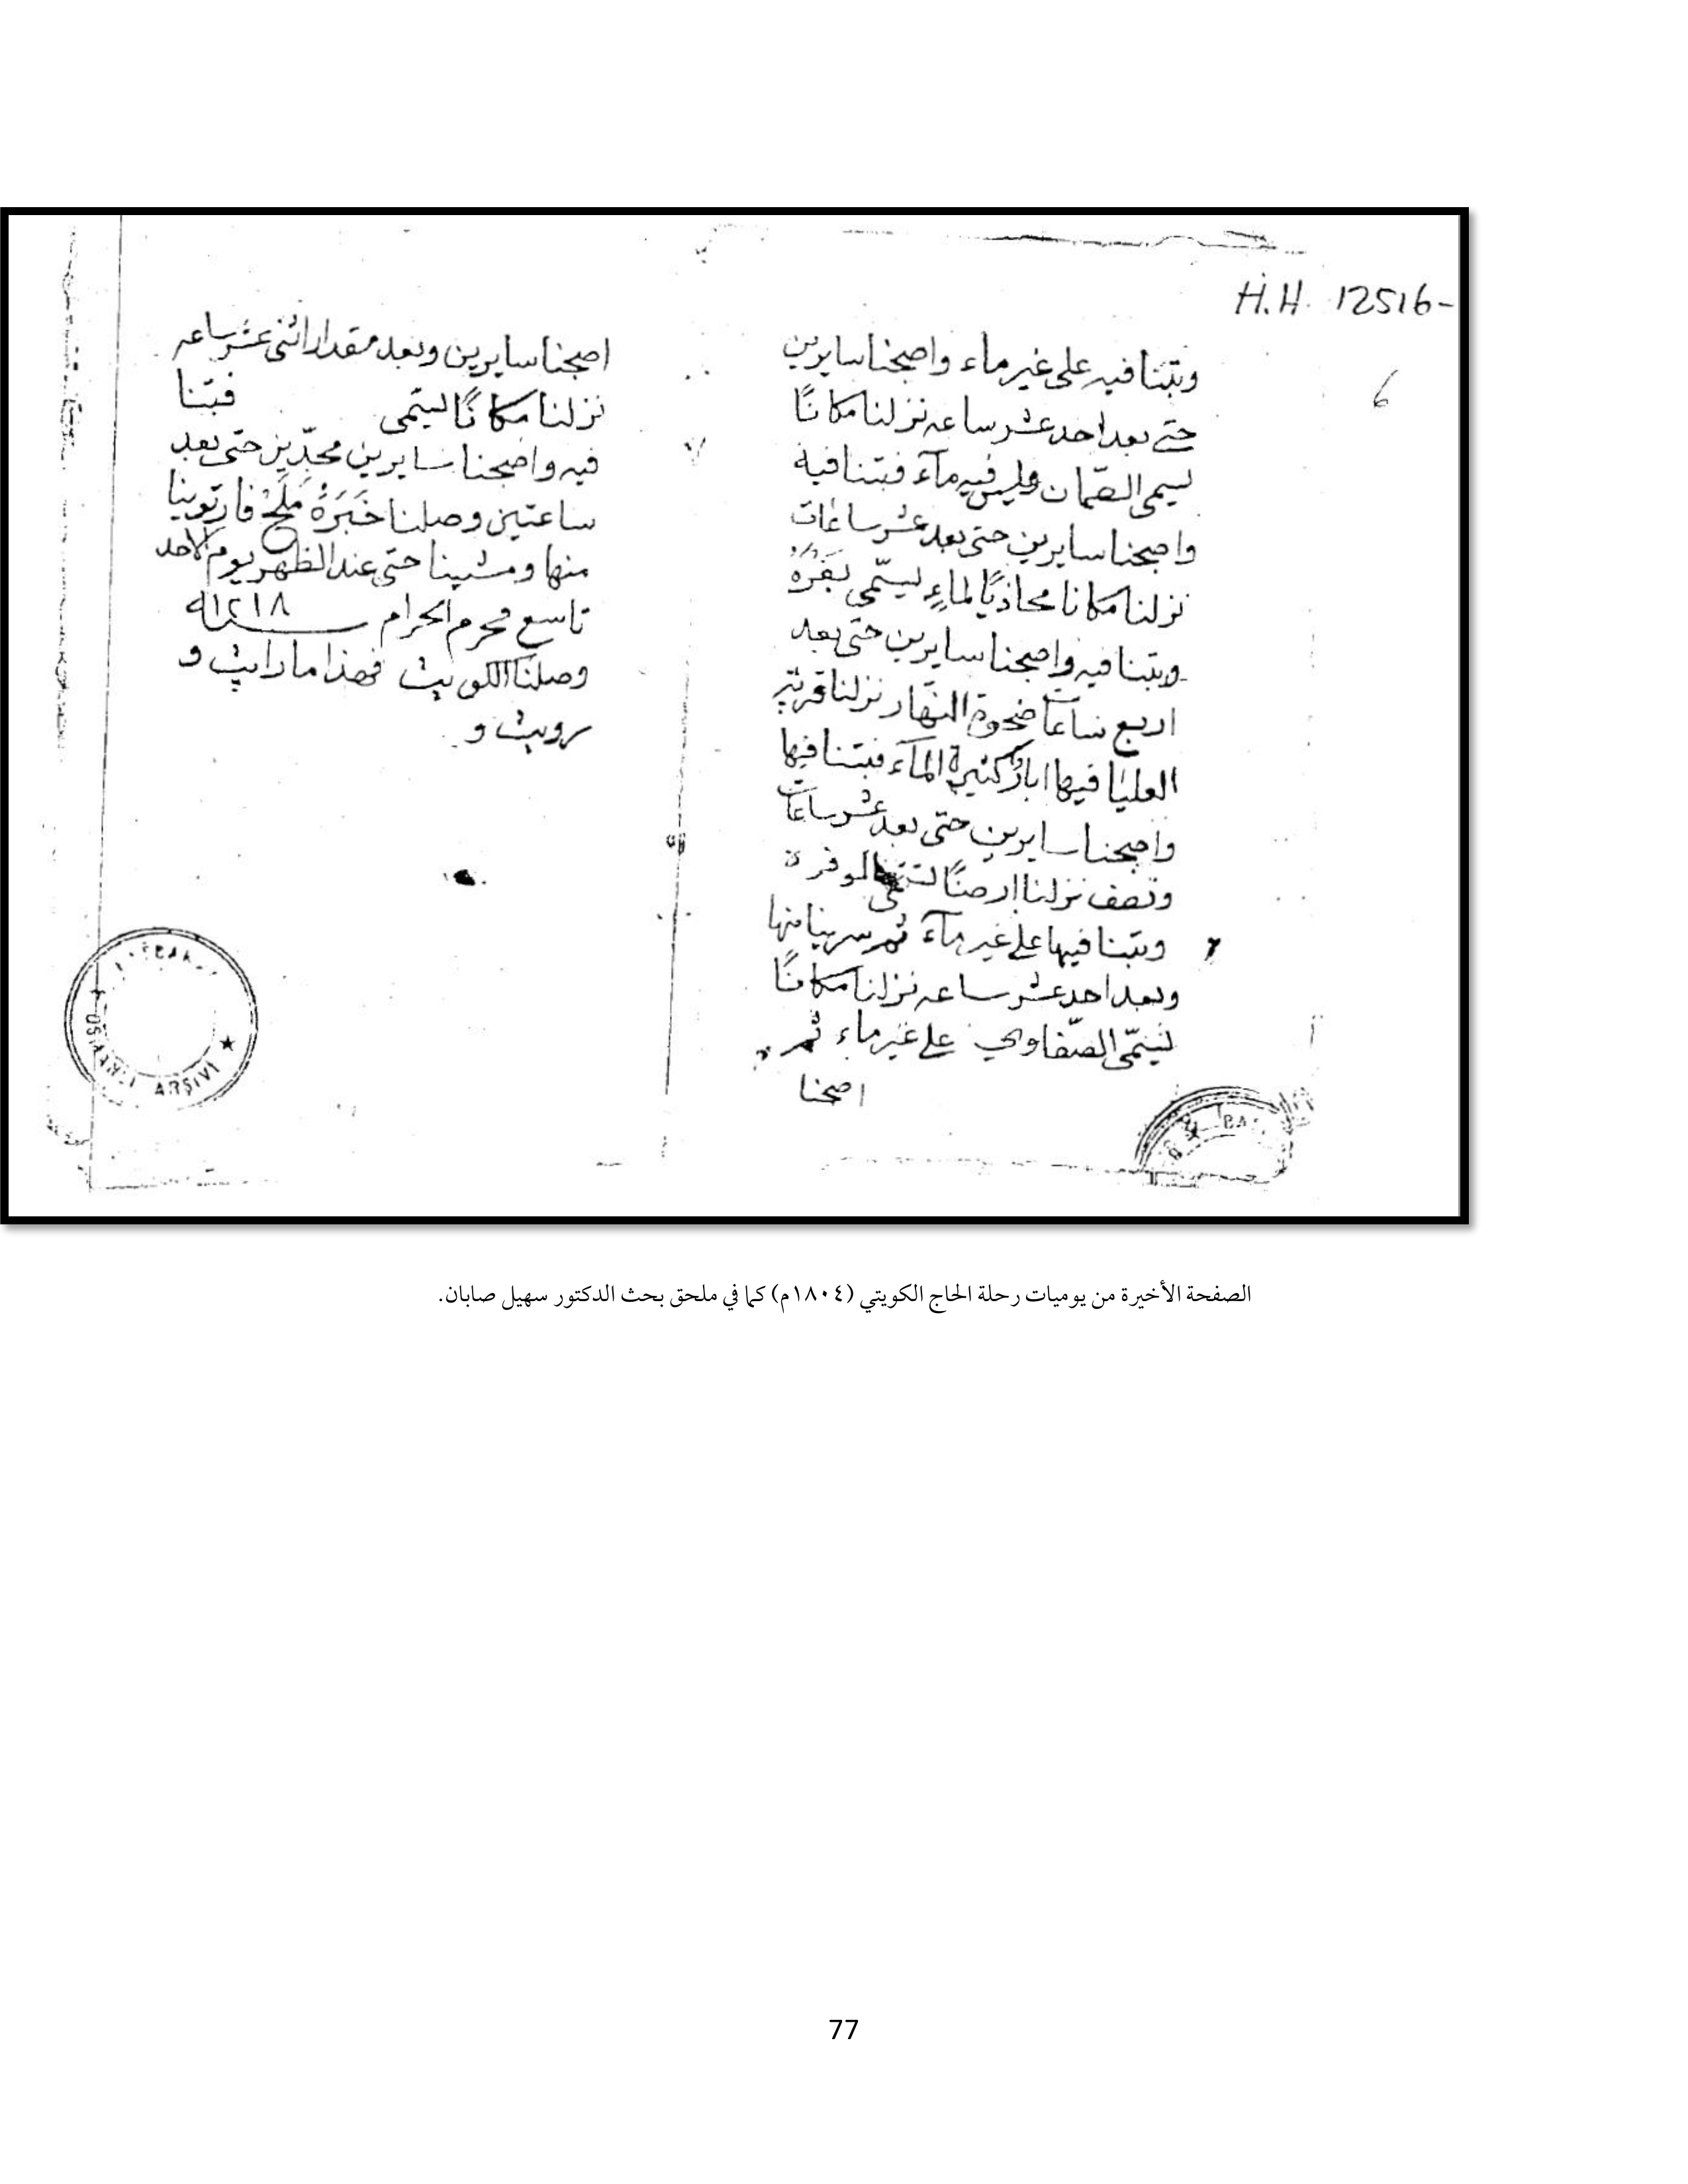 H.H. 12516-
6
وبتنا فيه على غير ماء واصبحنا سايرين
حتى بعد احد عشر ساعه نزلنا مكانًا
يسمى الصّمان وليس فيه مآء فبتنا فيه
واصبحنا سايرين حتى بعد عشر ساعات
نزلنا مكانا محاذيًا لماءٍ يسمّى
وبتنا فيه واصبحنا سايرين حتى بعد
اربع ساعات ضحوة النهار نزلنا قرية
العليا فيها ابار كثيرة المآء فبتنا فيها
واصبحنا سايرين حتى بعد عشر ساعات
ونصف نزلنا ارضًا تسمى الوفرة
وبتنا فيها على غير مآء ثم سرينا منها
وبعد احد عشر ساعه نزلنا مكانًا
يسمّى الصّفاوي على غير ماء ثم
اصبحنا
اصبحنا سايرين وبعد مقدار اثني عشر ساعه
نزلنا مكانًا يسمى فبتنا
فيه واصبحنا سايرين مجدّين حتى بعد
ساعتين وصلنا خَبَرَةُ مَلَحْ فارتوينا
منها ومشينا حتى عند الظهر يوم الاحد
تاسع محرم الحرام سنة ١٢١٨
وصلنا الكويت فهذا ما رايت و
رويت و
ARŞİVİ
BA
الصفحة الأخيرة من يوميات رحلة الحاج الكويتي (١٨٠٤م) كما في ملحق بحث الدكتور سهيل صابان.
77